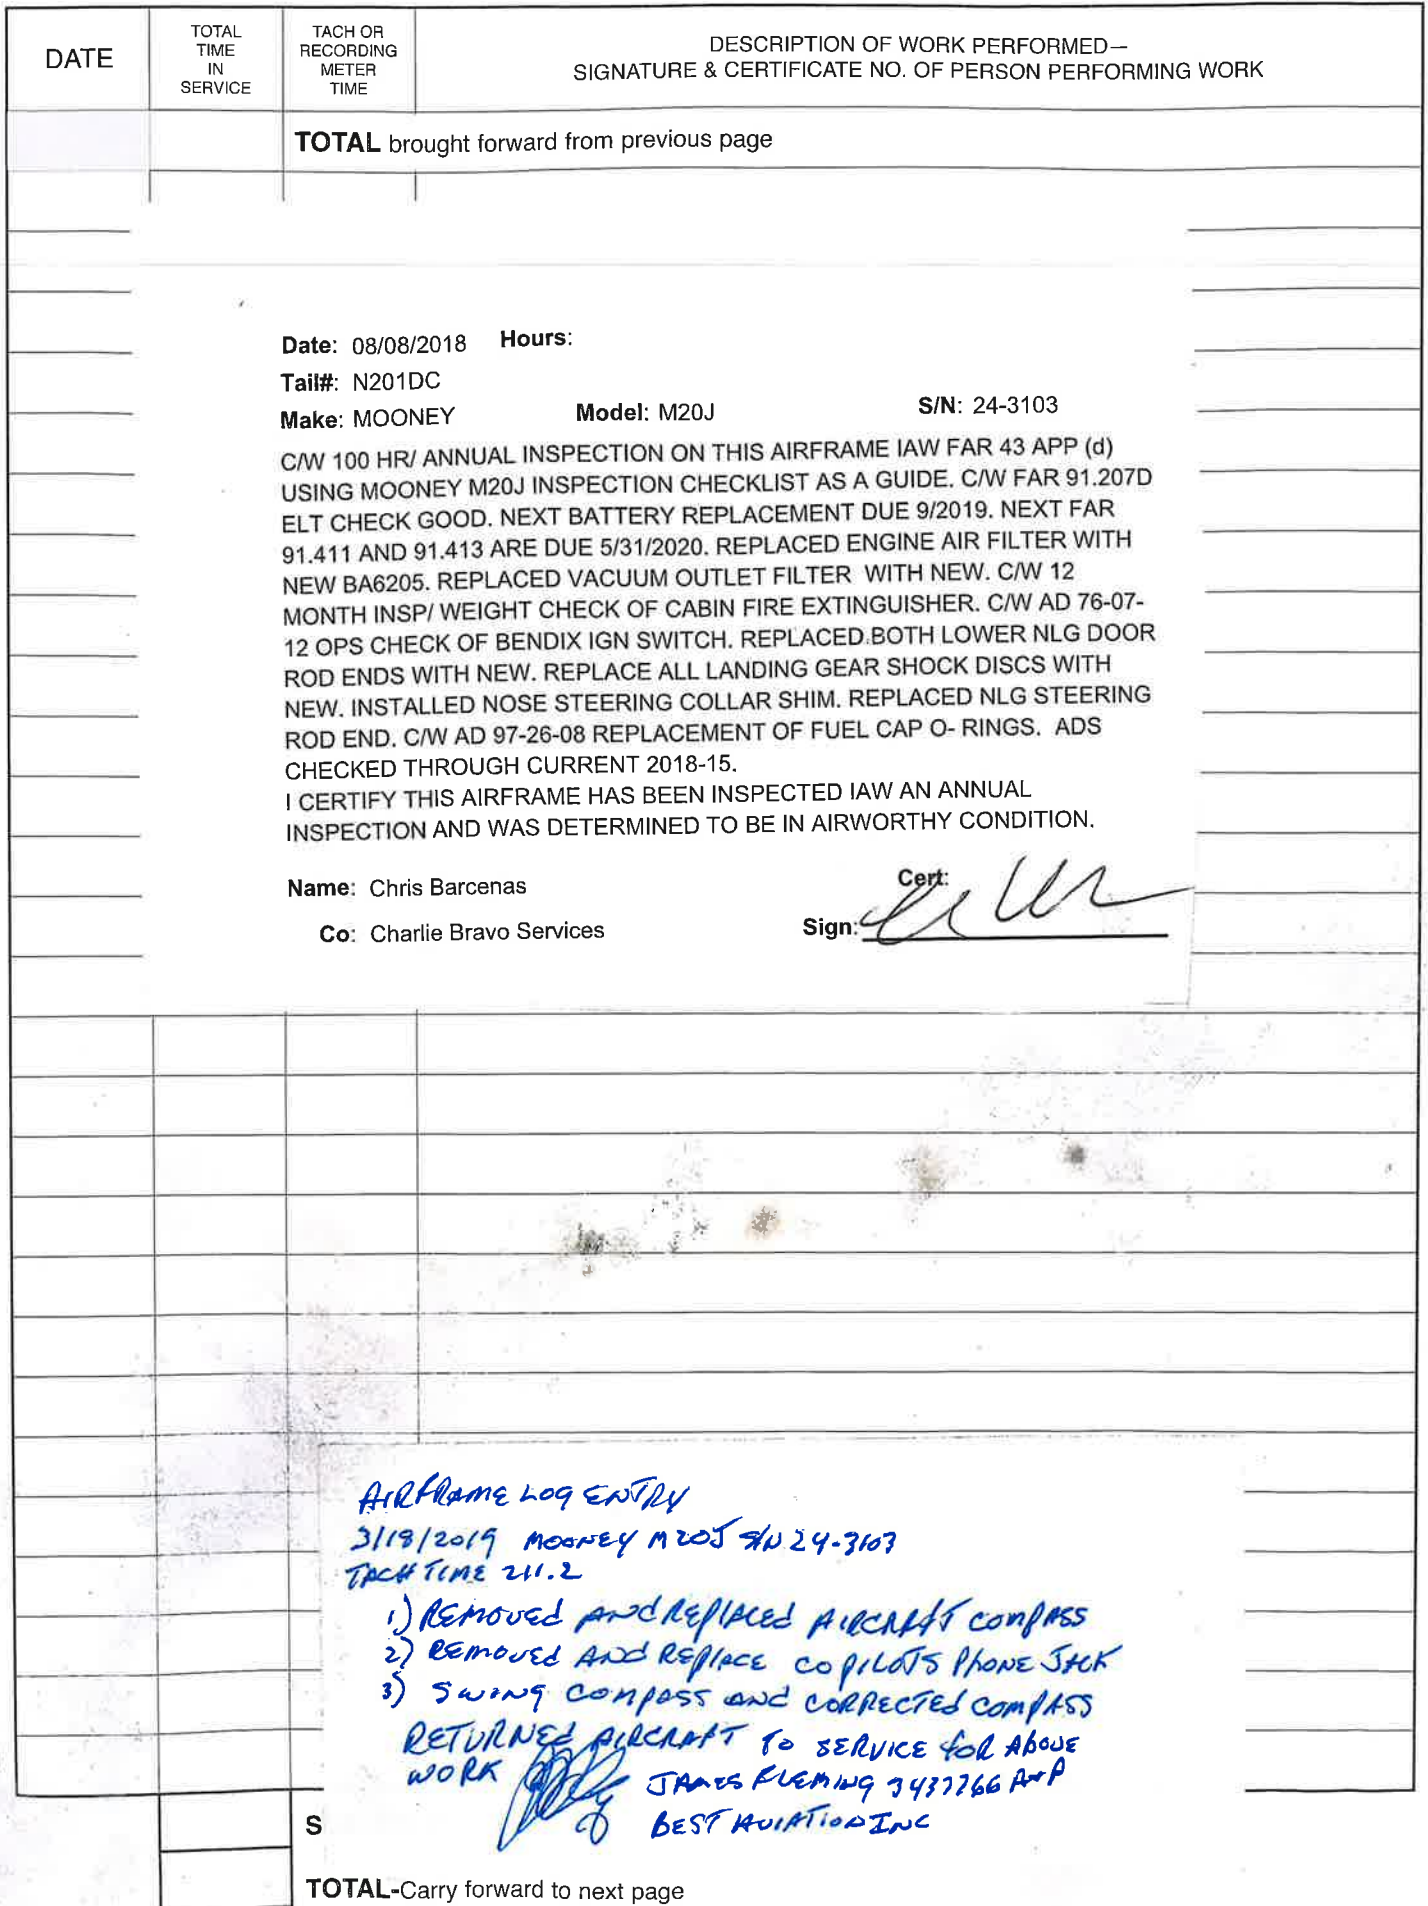 DATE
TOTAL
TIME
IN
SERVICE
TACH OR
RECORDING
METER
TIME
DESCRIPTION OF WORK PERFORMED—
SIGNATURE & CERTIFICATE NO. OF PERSON PERFORMING WORK
TOTAL brought forward from previous page
Date: 08/08/2018 Hours:
Tail#: N201DC
Make: MOONEY Model: M20J S/N: 24-3103
C/W 100 HR/ ANNUAL INSPECTION ON THIS AIRFRAME IAW FAR 43 APP (d)
USING MOONEY M20J INSPECTION CHECKLIST AS A GUIDE. C/W FAR 91.207D
ELT CHECK GOOD. NEXT BATTERY REPLACEMENT DUE 9/2019. NEXT FAR
91.411 AND 91.413 ARE DUE 5/31/2020. REPLACED ENGINE AIR FILTER WITH
NEW BA6205. REPLACED VACUUM OUTLET FILTER WITH NEW. C/W 12
MONTH INSP/ WEIGHT CHECK OF CABIN FIRE EXTINGUISHER. C/W AD 76-07-
12 OPS CHECK OF BENDIX IGN SWITCH. REPLACED BOTH LOWER NLG DOOR
ROD ENDS WITH NEW. REPLACE ALL LANDING GEAR SHOCK DISCS WITH
NEW. INSTALLED NOSE STEERING COLLAR SHIM. REPLACED NLG STEERING
ROD END. C/W AD 97-26-08 REPLACEMENT OF FUEL CAP O- RINGS. ADS
CHECKED THROUGH CURRENT 2018-15.
I CERTIFY THIS AIRFRAME HAS BEEN INSPECTED IAW AN ANNUAL
INSPECTION AND WAS DETERMINED TO BE IN AIRWORTHY CONDITION.
Name: Chris Barcenas Cert:
Co: Charlie Bravo Services Sign:
AIRFRAME LOG ENTRY
3/18/2019 MOONEY M20J S/N 24-3103
TACH TIME 211.2
1) REMOVED AND REPLACED AIRCRAFT COMPASS
2) REMOVED AND REPLACE COPILOTS PHONE JACK
3) SWING COMPASS AND CORRECTED COMPASS
RETURNED AIRCRAFT TO SERVICE FOR ABOVE
WORK JAMES FLEMING 3437266 A+P
BEST AVIATION INC
S
TOTAL-Carry forward to next page